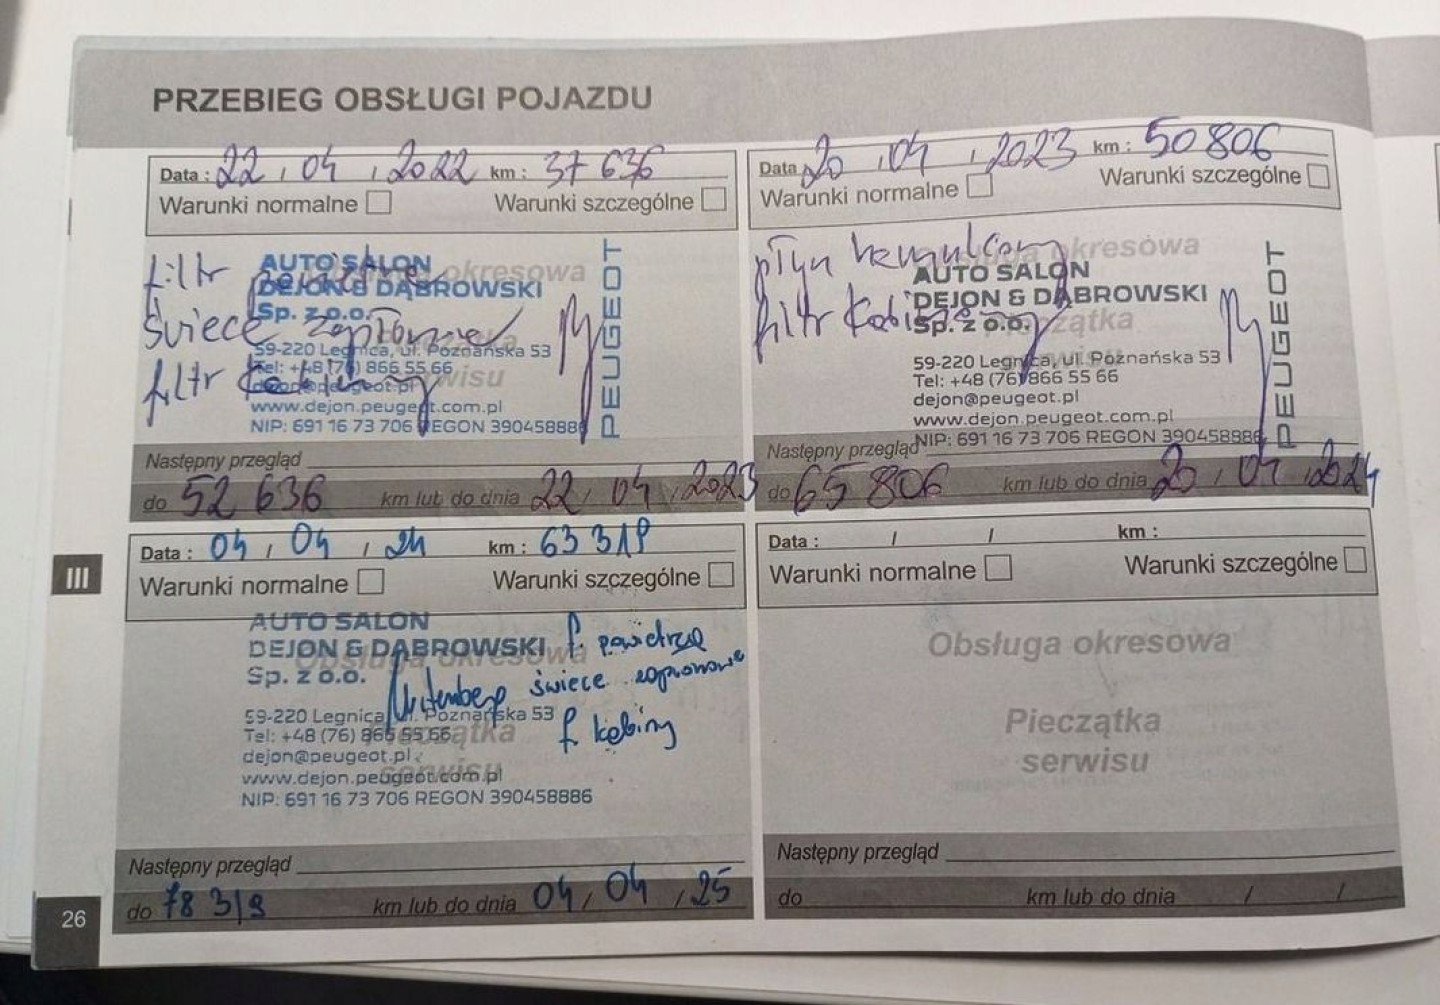 PRZEBIEG OBSŁUGI POJAZDU
Data : 22 / 04 / 2022 km : 37 636
Warunki normalne Warunki szczególne
Obsługa okresowa
Pieczątka
serwisu
AUTO SALON
DEJON & DĄBROWSKI
Sp. z o.o.
59-220 Legnica, ul. Poznańska 53
Tel: +48 (76) 866 55 66
dejon@peugeot.pl
www.dejon.peugeot.com.pl
NIP: 691 16 73 706 REGON 390458886
PEUGEOT
filtr powietrza
świece zapłonowe
filtr kabinowy
Następny przegląd
do 52 636 km lub do dnia 22 / 04 / 2023
Data : 20 / 04 / 2023 km : 50 806
Warunki normalne Warunki szczególne
Obsługa okresowa
Pieczątka
serwisu
AUTO SALON
DEJON & DĄBROWSKI
Sp. z o.o.
59-220 Legnica, ul. Poznańska 53
Tel: +48 (76) 866 55 66
dejon@peugeot.pl
www.dejon.peugeot.com.pl
NIP: 691 16 73 706 REGON 390458886
PEUGEOT
płyn hamulcowy
filtr kabinowy
Następny przegląd
do 65 806 km lub do dnia 20 / 04 / 2024
III
Data : 04 / 04 / 24 km : 63 319
Warunki normalne Warunki szczególne
Obsługa okresowa
Pieczątka
serwisu
AUTO SALON
DEJON & DĄBROWSKI
Sp. z o.o.
59-220 Legnica, ul. Poznańska 53
Tel: +48 (76) 866 55 66
dejon@peugeot.pl
www.dejon.peugeot.com.pl
NIP: 691 16 73 706 REGON 390458886
f. powietrza
świece zapłonowe
f. kabiny
Następny przegląd
do 78 319 km lub do dnia 04 / 04 / 25
Data : / / km :
Warunki normalne Warunki szczególne
Obsługa okresowa
Pieczątka
serwisu
Następny przegląd
do km lub do dnia / /
26